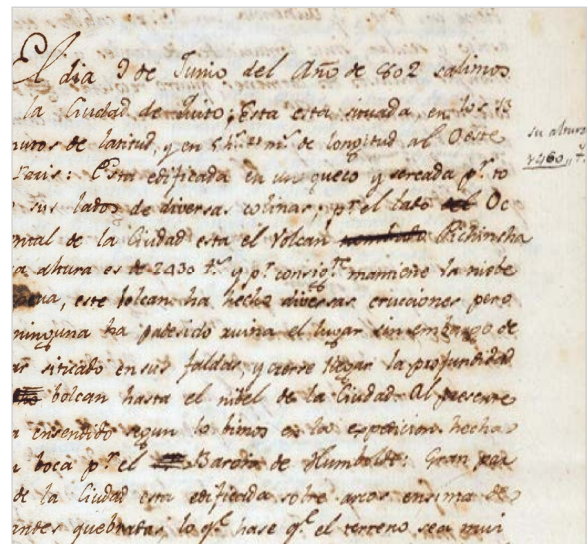 El dia 9 de Junio del Año de 802 salimos
la Ciudad de Quito; Esta esta situada, en los 13
nutos de latitud, y en 5 h.s 21 m.s de longitud al Oeste
Paris: Esta edificada en un gueco y sercada p.r to
sus lados de diversas colinas; p.r el lado del Oc
ental de la Ciudad esta el Volcan Pichincha
a altura es de 2430 t.s y p.r consig.te mantiene la niebe
este bolcan ha hecho diversas erucciones pero
ninguna ha padesido ruina el lugar sin embargo de
ar siticado en sus faldas, y aierse llegar la profundidad
bolcan hasta el nibel de la Ciudad. Al presente
ensendido segun lo bimos en la espedicion hecha
boca p.r el Baron de Humboldt: Gran par
de la Ciudad esta edificada sobre arcos ensima de
antes quebratas, lo q.e hase q.e el terreno sea mui
su altura
1460